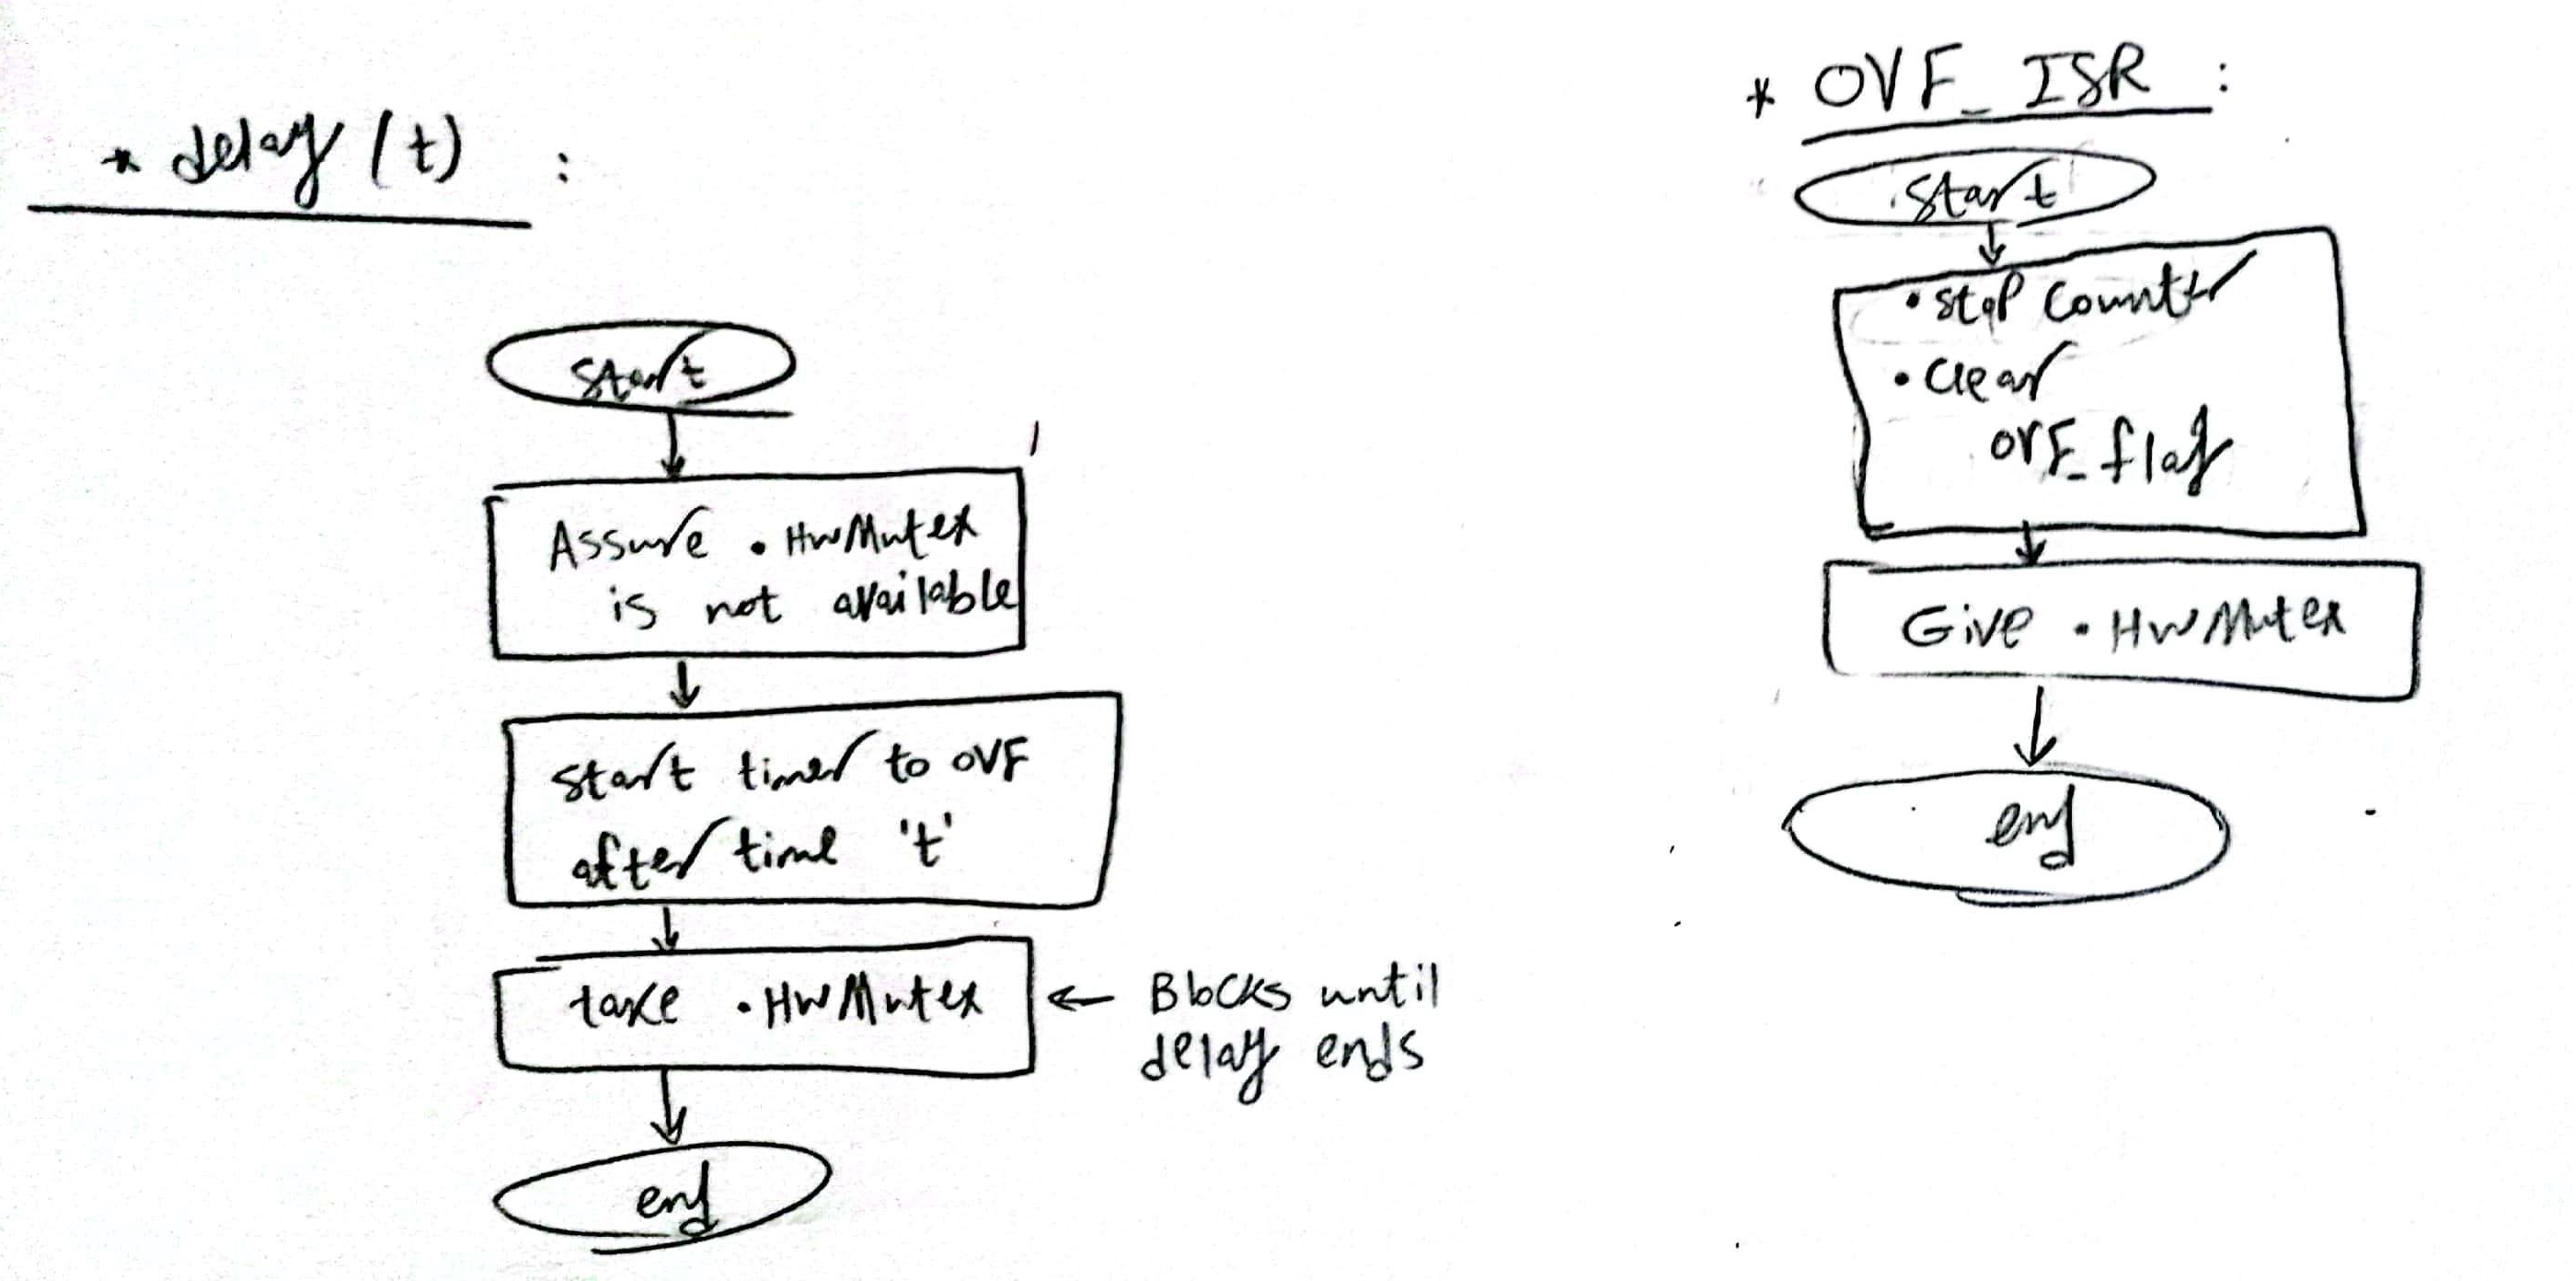 * delay (t) :
Start
Assure .HwMutex
is not available
start timer to OVF
after time 't'
take .HwMutex
← Blocks until
delay ends
end
* OVF_ISR :
Start
• stop counter
• clear
OVF_flag
Give .HwMutex
end